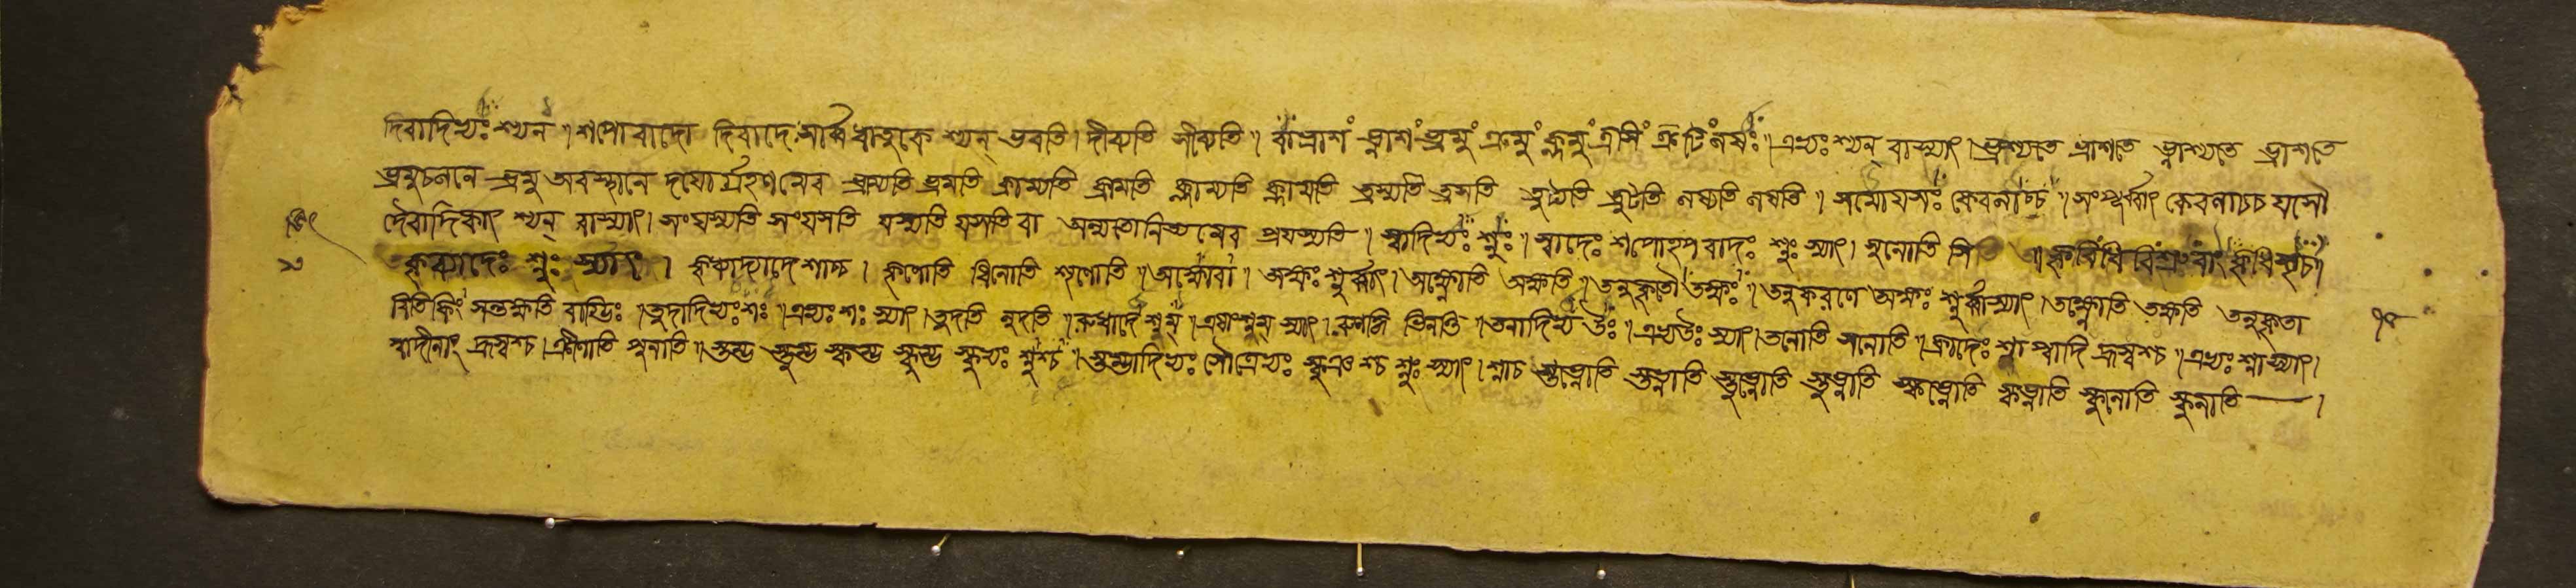 দিবাদিভ্যঃ শ্যন্ । শপোবাদো দিবাদেঃ সার্ব্বধাতুকে শ্যন্ ভবতি । দীব্যতি সীব্যতি । বা ভ্রাশ ভ্লাশ ভ্রমু ক্রমু ক্লমু ত্রসি ত্রুটি লষঃ । এভ্যঃ শ্যন্ বা স্যাৎ । ভ্রাশ্যতে ভ্রাশতে ভ্লাশ্যতে ভ্লাশতে
ভ্রমুচলনে ভ্রমু অবস্থানে দ্বয়োর্গ্রহণমেব ভ্রাম্যতি ভ্রমতি ক্রাম্যতি ক্রামতি ক্লাম্যতি ক্লামতি ত্রস্যতি ত্রসতি ত্রুট্যতি ত্রুটতি লষ্যতি লষতি । সমোযসঃ কেবলাচ্চ । সংপূর্ব্বাৎ কেবলাচ্চ যসো
দৈবাদিকাৎ শ্যন্ বা স্যাৎ । সংযস্যতি সংযসতি যস্যতি যসতি বা অন্যতোনিত্যমেব প্রযস্যতি । স্বাদিভ্যঃ শ্নুঃ । স্বাদেঃ শপোঽপবাদঃ শ্নুঃ স্যাৎ । সুনোতি সি
শ্নুঃ স্যাৎ । কৃণোতি ধিনোতি শৃণোতি । অক্ষোবা । অক্ষঃ শ্নুর্ব্বা স্যাৎ । অক্ষ্ণোতি অক্ষতি । তনুকৃতৌ তক্ষঃ । তনুকরণে তক্ষঃ শ্নুর্ব্বা স্যাৎ । তক্ষ্ণোতি তক্ষতি তনুকৃতা
বিতি কিং সন্তক্ষতি বাগ্ভিঃ । তুদাদিভ্যঃ শঃ । এভ্যঃ শঃ স্যাৎ । তুদতি নুদতি । রুধাদেঃ শ্নম্ । এষাং শ্নম্ স্যাৎ । রুণদ্ধি ভিনত্তি । তনাদিভ্য উঃ । এভ্য উঃ স্যাৎ । তনোতি সনোতি । ক্র্যাদেঃ শ্না প্বাদি হ্রস্বশ্চ । এভ্যঃ শ্না স্যাৎ ।
প্বাদীনাং হ্রস্বশ্চ । ক্রীণাতি পুনাতি । স্তন্ভ স্তুন্ভ স্কন্ভ স্কুন্ভ স্কুভ্যঃ শ্নুশ্চ । স্তন্ভাদিভ্যঃ সৌত্রেভ্যঃ স্কুঞশ্চ শ্নুঃ স্যাৎ । শ্নাচ স্তভ্নোতি স্তভ্নাতি স্তুভ্নোতি স্তুভ্নাতি স্কভ্নোতি স্কভ্নাতি স্কুনোতি স্কুনাতি — ।